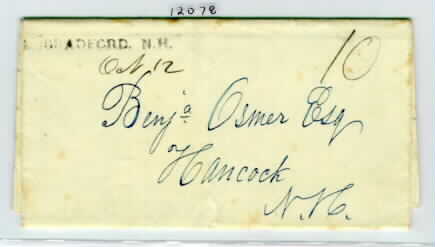 12078
BRADFORD. N.H.
10
Oct. 12
Benja. Osmer Esq
Hancock
N.H.